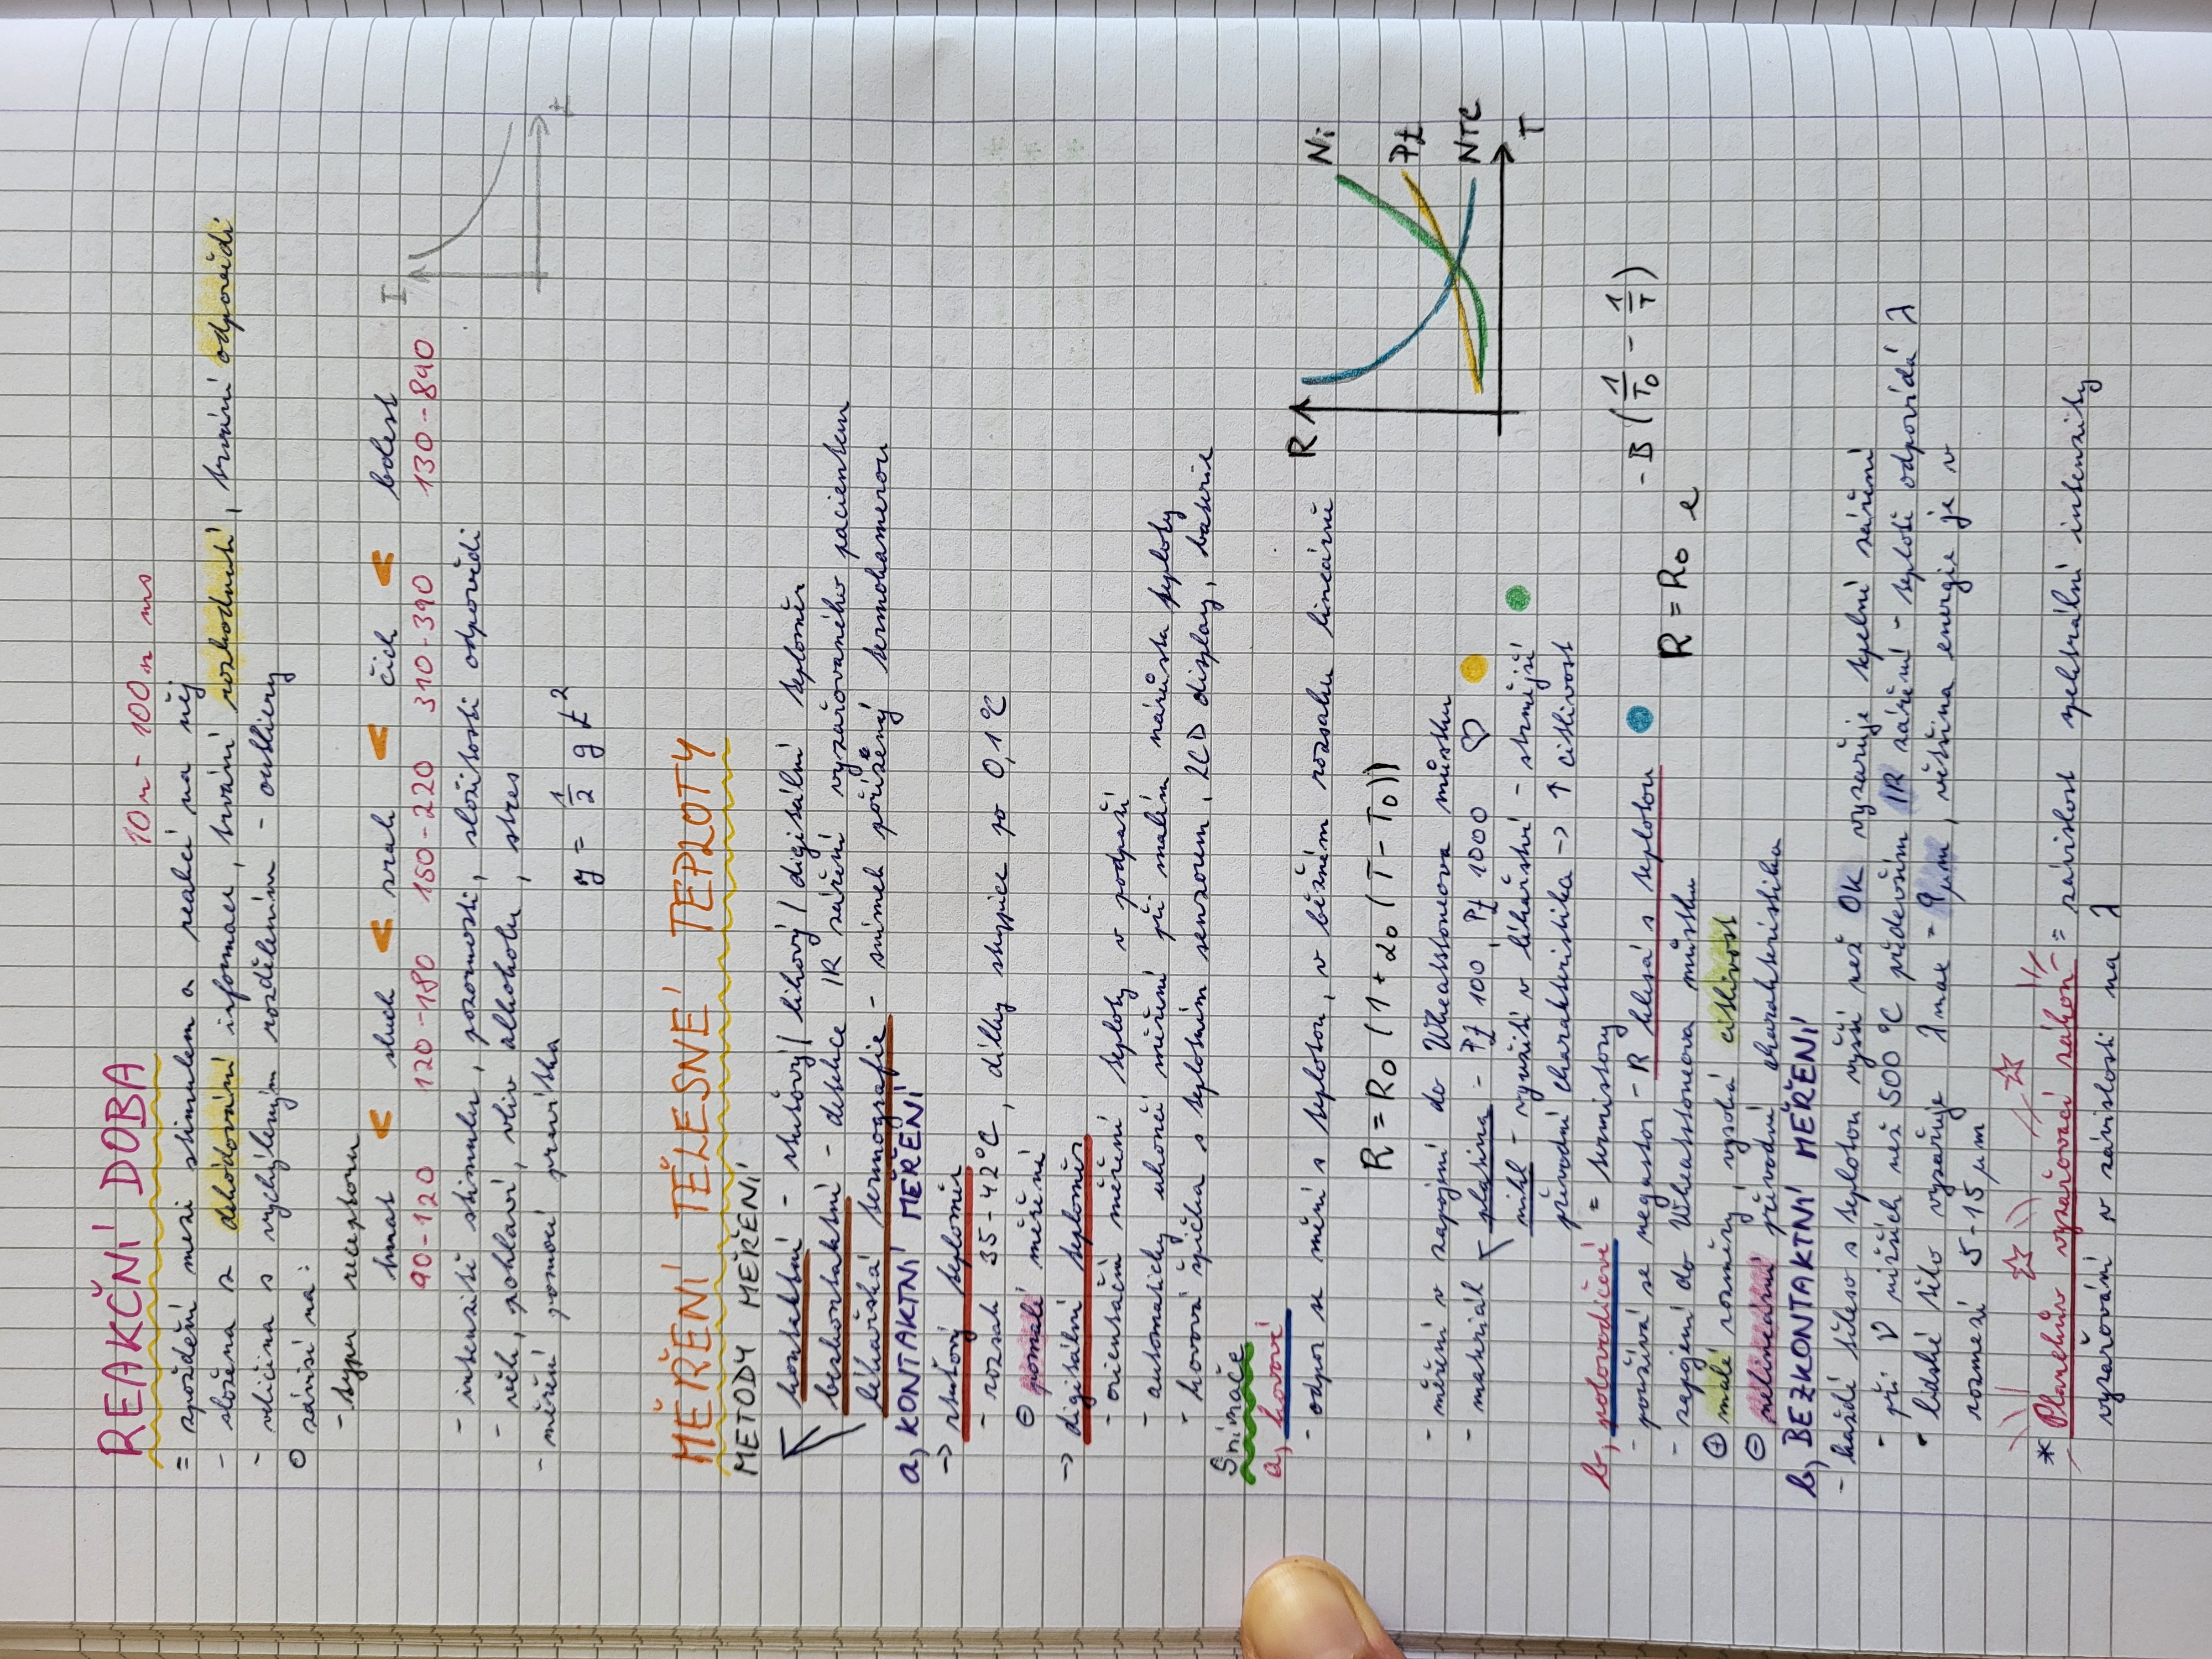 REAKČNÍ DOBA
10ⁿ - 100ⁿ ms
= zpoždění mezi stimulem a reakcí na něj
- složena z dekódování informace, trvání rozhodnutí, trvání odpovědi
- veličina s vychýleným rozdělením - outliery
○ závisí na:
- typu receptoru
hmat < sluch < zrak < čich < bolest
90-120 120-180 150-220 310-390 130-890
I
- intenzitě stimulu, pozornosti, složitosti odpovědi
- věk, pohlaví, vliv alkoholu, stres
- měření pomocí pravítka
t
y = 1/2 g t²
MĚŘENÍ TĚLESNÉ TEPLOTY
METODY MĚŘENÍ
kontaktní - rtuťový/ lihový / digitální teploměr
bezkontaktní - detekce IR záření vyzařovaného pacientem
lékařská termografie - snímek pořízený termokamerou
a, KONTAKTNÍ MĚŘENÍ
→ rtuťový teploměr
- rozsah 35-42°C, dílky stupnice po 0,1°C
⊖ pomalé měření
→ digitální teploměr
- orientační měření teploty v podpaží
- automaticky ukončí měření při malém nárůstu teploty
- kovová špička s teplotním senzorem, LCD display, baterie
Snímače
a, kovové
- odpor se mění s teplotou, v běžném rozsahu lineárně
R = R₀ (1 + α₀ (T - T₀))
R
Ni
Pt
NTC
T
- měření v zapojení do Wheatstoneova můstku
- materiál platina - Pt 100, Pt 1000 ♡
nikl - využití v lékařství - strmější
převodní charakteristika → ↑ citlivost
b, polovodičové = termistory
- používá se negastor - R klesá s teplotou
R = R₀ e^{-B (1/T₀ - 1/T)}
- zapojení do Wheatstoneova můstku
⊕ malé rozměry, vysoká citlivost
⊖ nelineární převodní charakteristika
b, BEZKONTAKTNÍ MĚŘENÍ
- každé těleso s teplotou vyšší než 0K vyzařuje tpelné záření
- při ϑ nižších než 500 °C především IR záření - teplotě odpovídá λ
- lidské tělo vyzařuje λmax = 9μm, většina energie je v
rozmezí 5-15 μm
* Planckův vyzařovací zákon = závislost spektrální intenzity
vyzařování v závislosti na λ